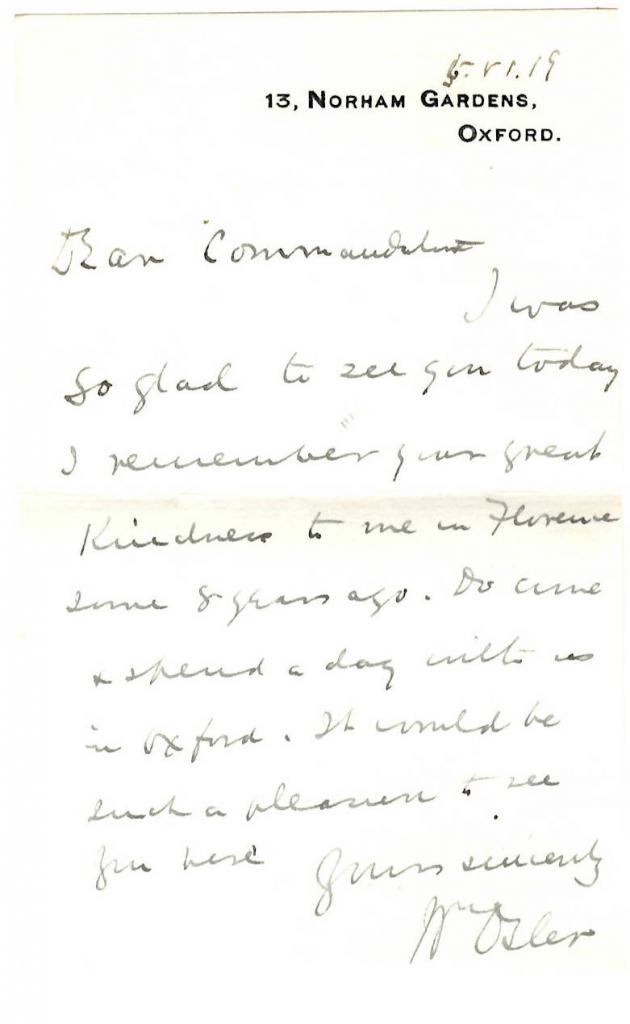 5.VI.19
13, NORHAM GARDENS,
OXFORD.
Dear Commandant
I was
so glad to see you today
I remember your great
Kindness to me in Florence
some 8 years ago. Do come
& spend a day with us
in Oxford. It would be
such a pleasure to see
you here Yours sincerely
Wm Osler